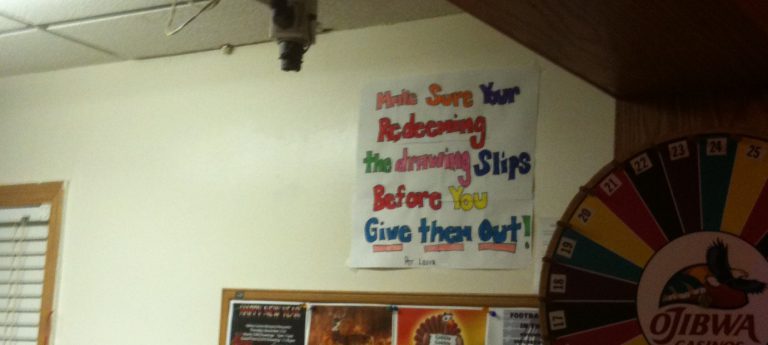 Make Sure Your
Redeeming
the drawing Slips
Before You
Give them Out!
Per Laura
HAPPY NEW YEAR
FOOTBA
IN T
17
18
19
20
21
22
23
24
25
OJIBWA
CASINOS